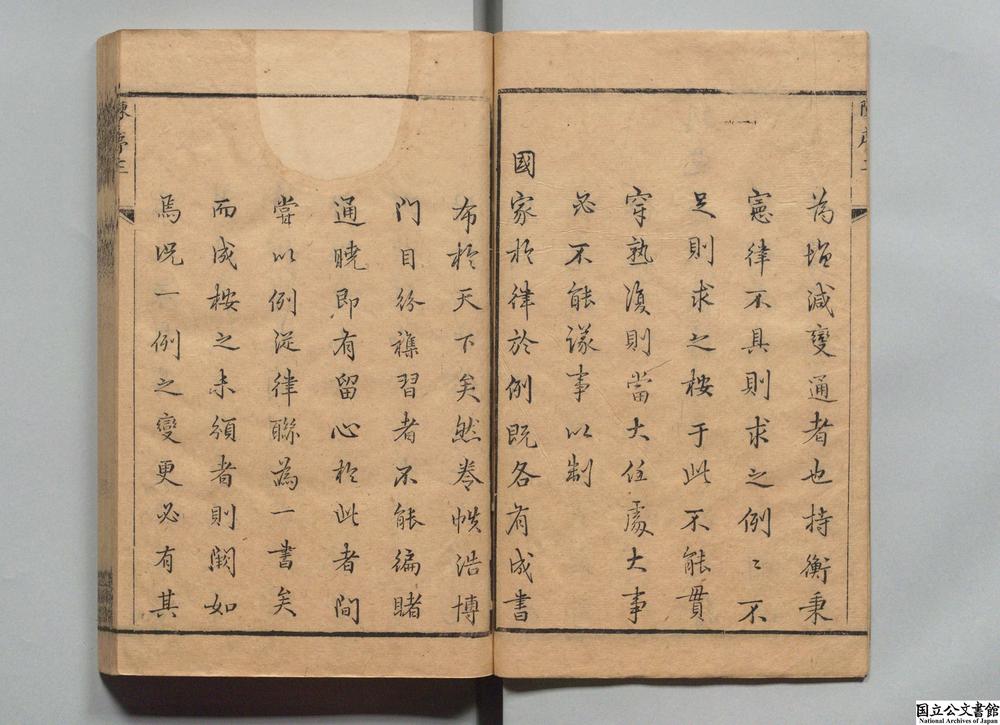 為增減變通者也持衡秉
憲律不具則求之例〻不
足則求之桉于此不能貫
穿熟復則當大任處大事
必不能議事以制
國家於律於例既各有成書
布於天下矣然卷帙浩博
門目紛襍習者不能徧睹
通曉即有留心於此者間
嘗以例從律聯為一書矣
而成桉之未頒者則闕如
焉況一例之變更必有其
陳序三
国立公文書館
National Archives of Japan